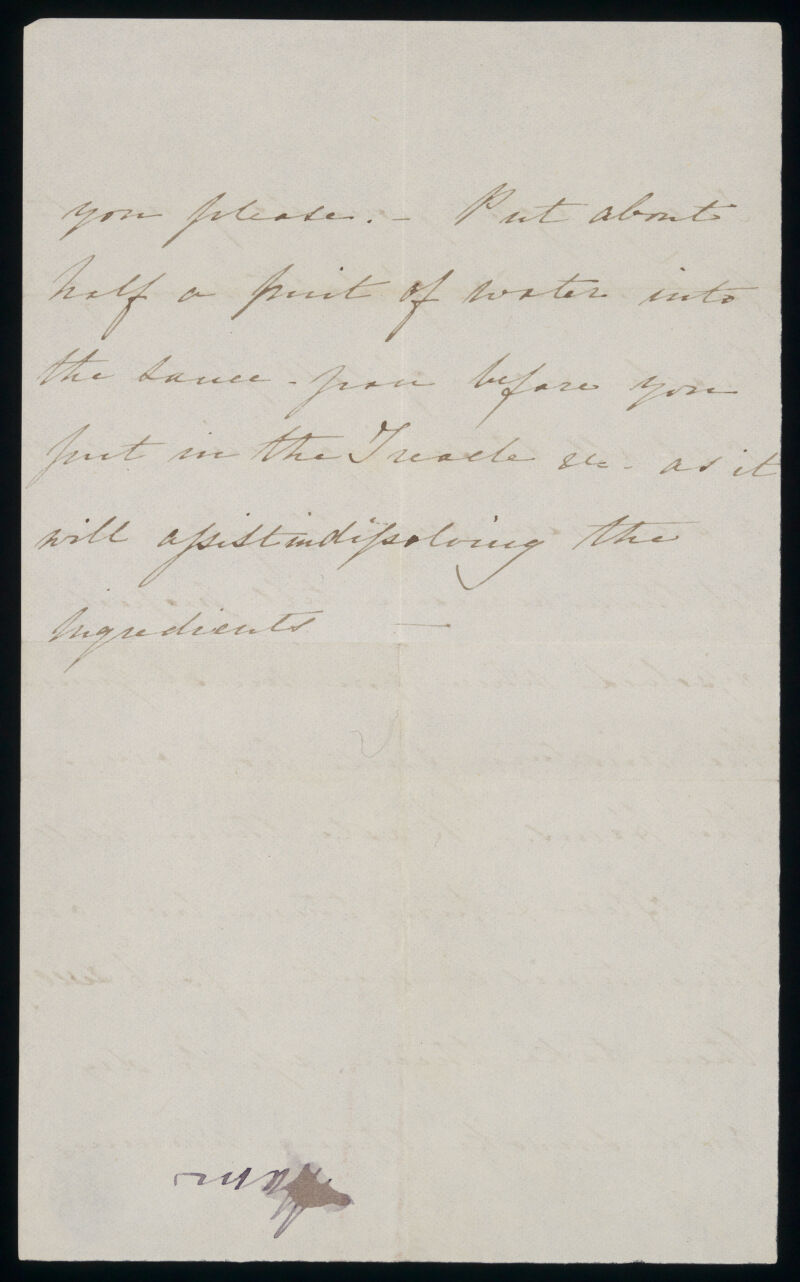 you please. - Put about
half a pint of water into
the sauce - pan before you
put in the Treacle &c - as it
will assist in dissolving the
ingredients —